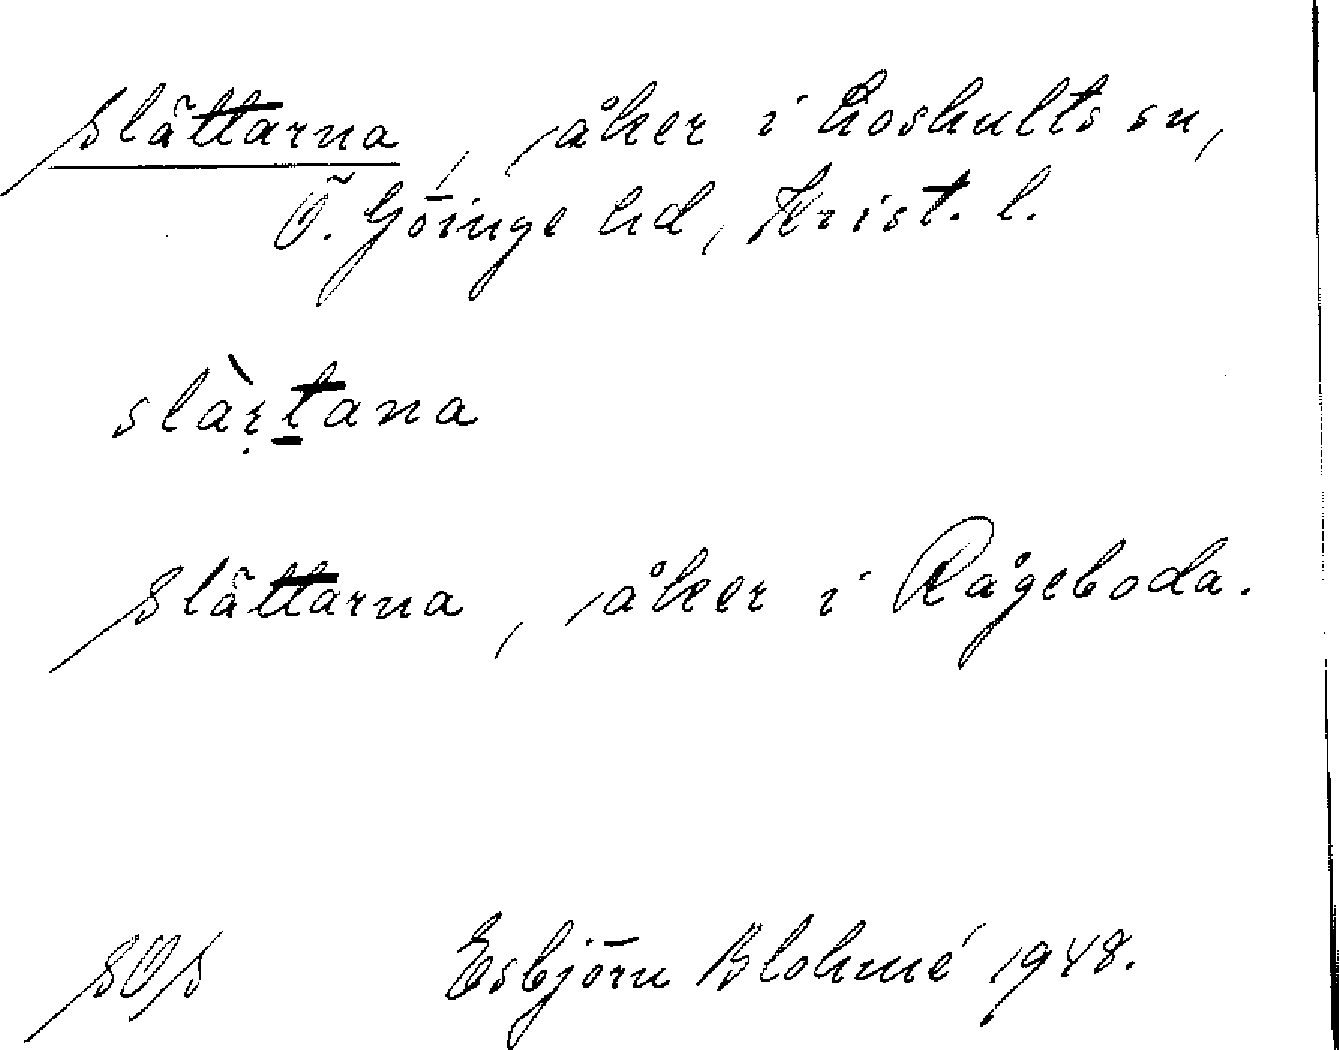 Slättarna, åker i Loshults sn,
Ö. Göinge hd, Krist. l.
slàṛṯana
Slättarna, åker i Rågeboda.
SOS Esbjörn Blohmé 1948.